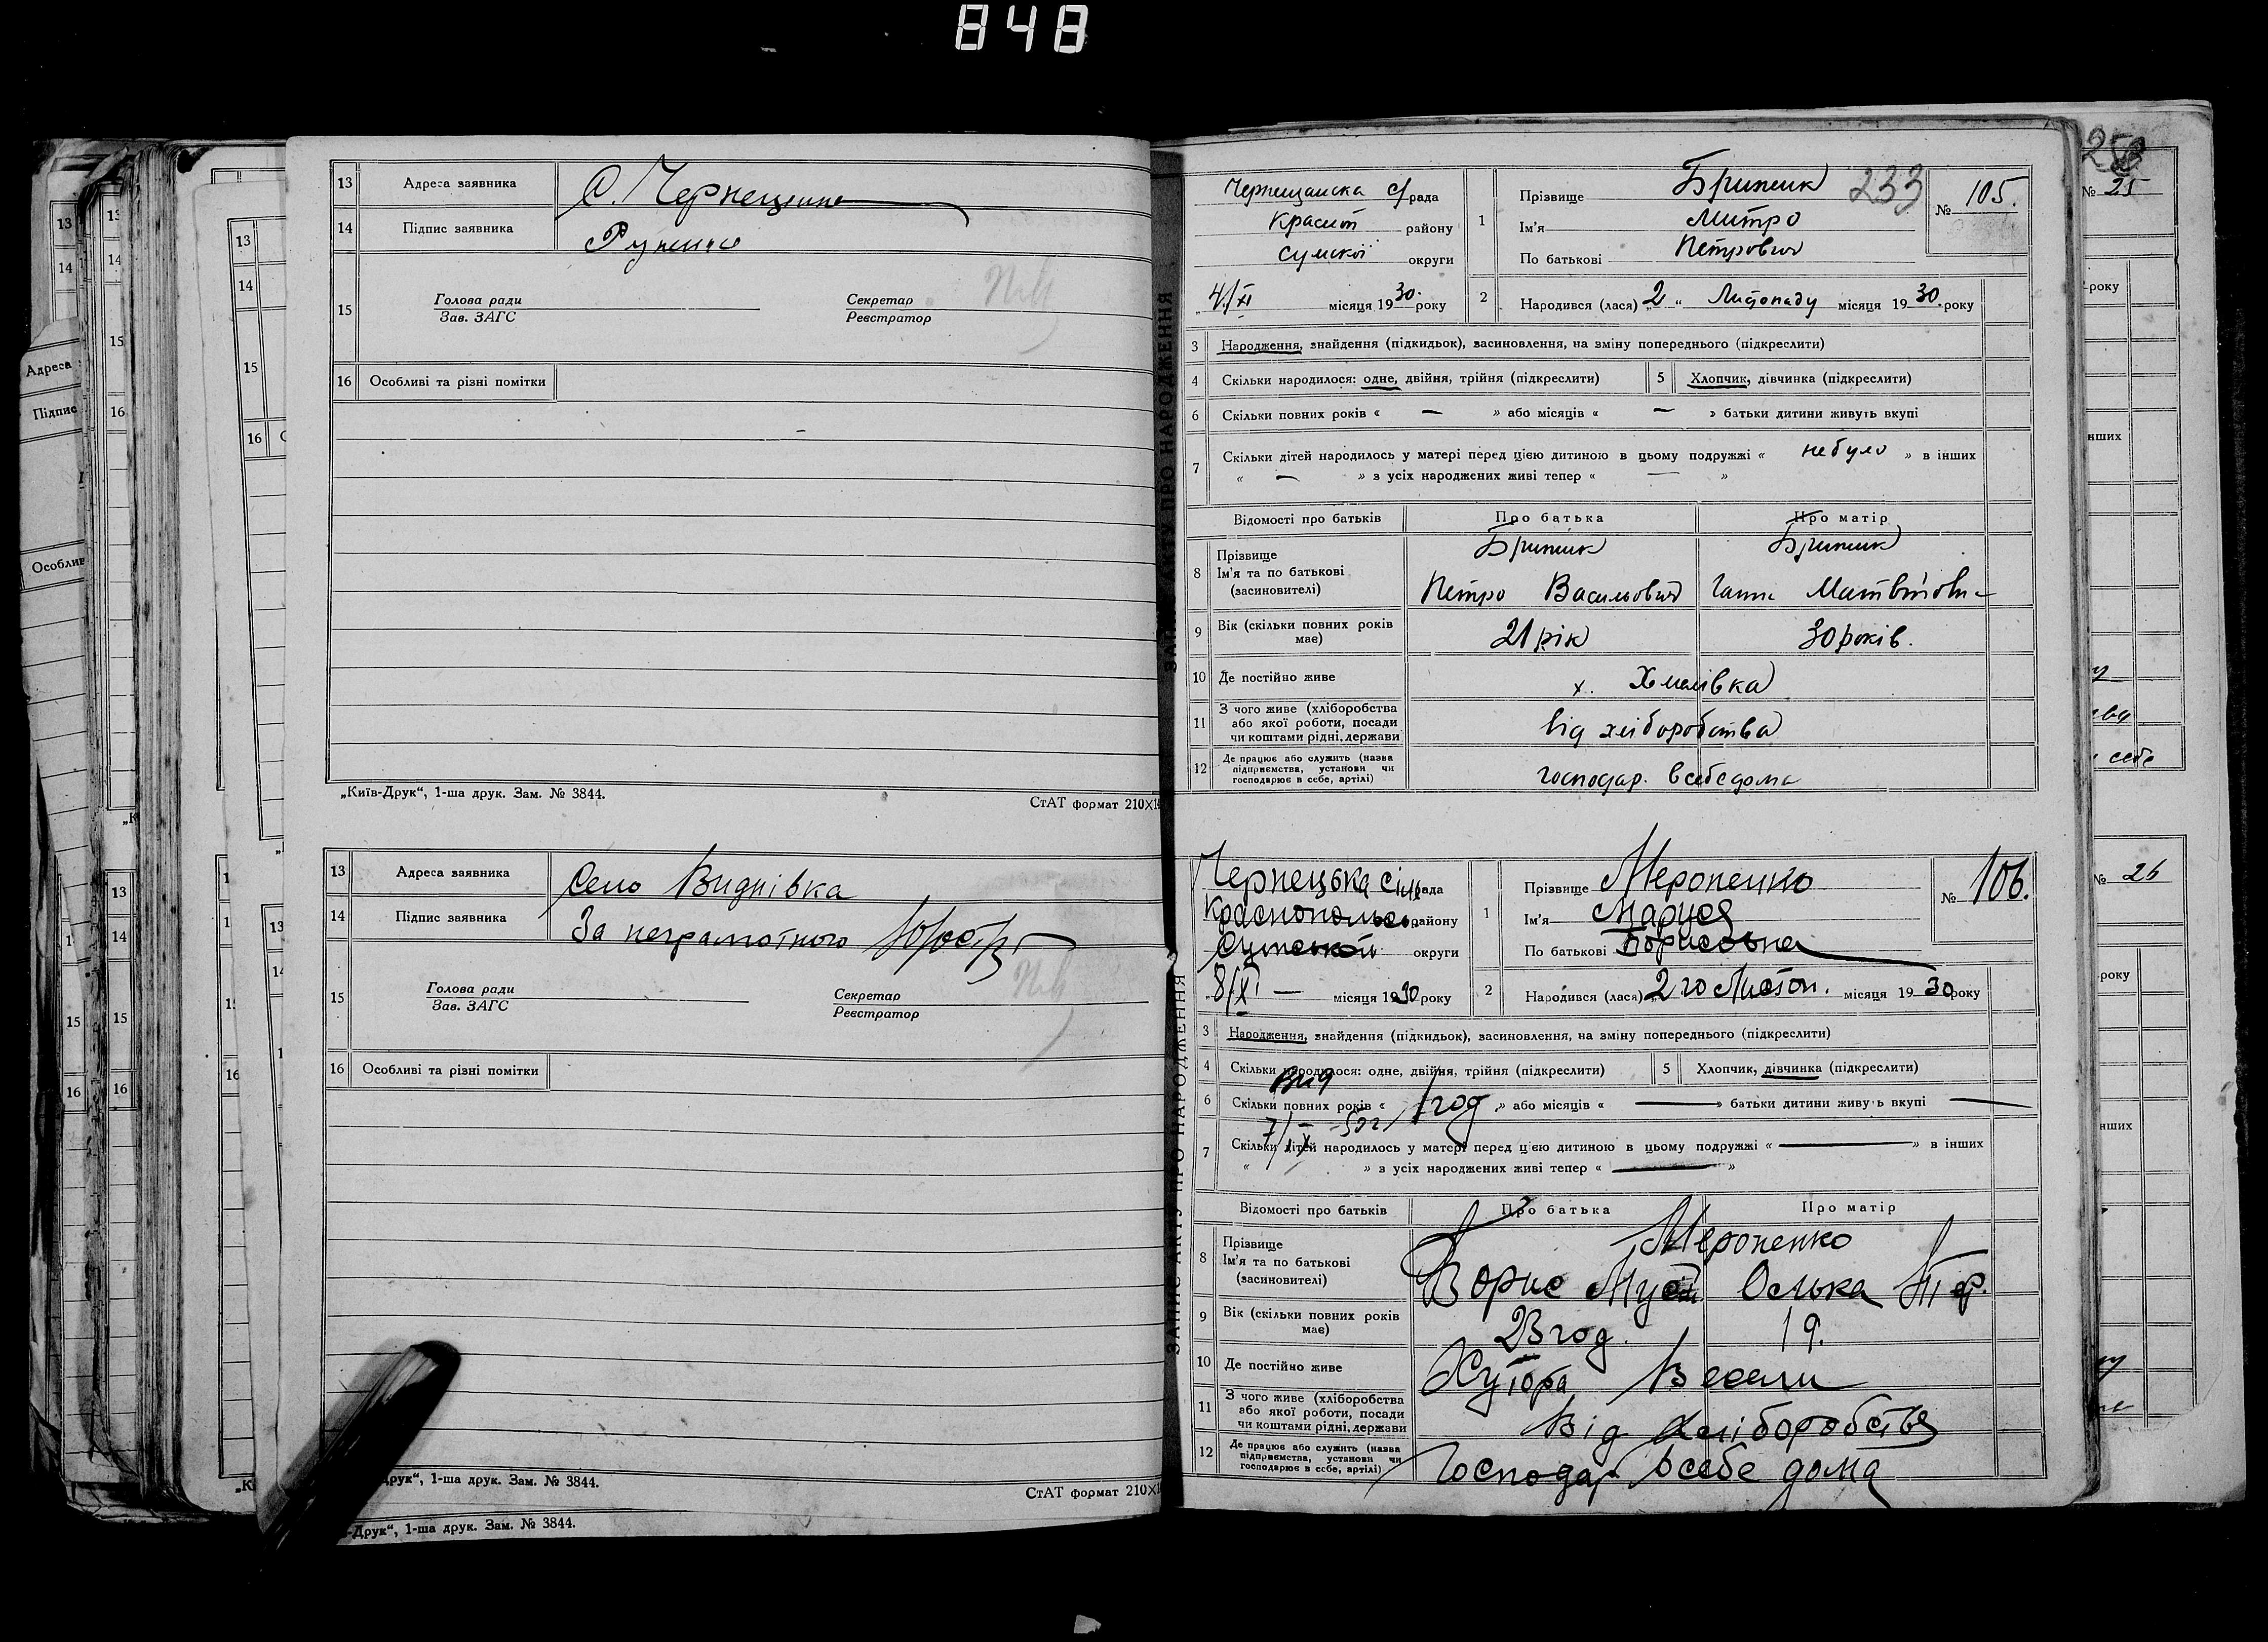 848
13 Адреса заявника С. Чернещина
14 Підпис заявника
15 Голова ради Секретар
Зав. ЗАГС Реєстратор
16 Особливі та різні помітки
„Київ-Друк“, 1-ша друк. Зам. № 3844.
СтАТ формат 210×1
13 Адреса заявника Село Виднівка
14 Підпис заявника За неграмотного
15 Голова ради Секретар
Зав. ЗАГС Реєстратор
16 Особливі та різні помітки
друк“, 1-ша друк. Зам. № 3844.
СтАТ формат 210×1
-Друк“, 1-ша друк. Зам. № 3844.
ЗАПИС АКТУ ПРО НАРОДЖЕННЯ
233
Чернещанска с/рада
Красноп району
Сумскої округи
4/XI місяця 1930 року
1 Прізвище
Ім'я Митро
По батькові Петрович
№ 105.
2 Народився (лася) „2“ Листопаду місяця 1930 року
3 Народження, знайдення (підкидьок), васиновлення, на зміну попереднього (підкреслити)
4 Скільки народилося: одне, двійня, трійня (підкреслити) 5 Хлопчик, дівчинка (підкреслити)
6 Скільки повних років « — » або місяців « — » батьки дитини живуть вкупі
7 Скільки дітей народилось у матері перед цією дитиною в цьому подружжі « небуло » в інших
« — » з усіх народжених живі тепер « — »
Відомості про батьків Про батька Про матір
8 Прізвище
Ім'я та по батькові Петро Васильович Ганна
(засиновителі)
9 Вік (скільки повних років має) 21 рік 30 років.
10 Де постійно живе х. Хмелівка
11 З чого живе (хліборобства
або якої роботи, посади від хліборобства
чи коштами рідні, держави
12 Де працює або служить (назва
підприємства, установи чи господар. в себе дома
господарює в себе, артілі)
ЗАПИС АКТУ ПРО НАРОДЖЕННЯ
Чернецька Сіль рада
району
округи
8/XI — місяця 1930 року
1 Прізвище Меропенко
Ім'я Маруся
По батькові Борисовна
№ 106.
2 Народився (лася) 2го Листоп. місяця 1930 року
3 Народження, знайдення (підкидьок), засиновлення, на зміну попереднього (підкреслити)
4 Скільки народилося: одне, двійня, трійня (підкреслити) 5 Хлопчик, дівчинка (підкреслити)
6 Скільки повних років « 1 год » або місяців « — » батьки дитини живуть вкупі —
7 Скільки дітей народилось у матері перед цією дитиною в цьому подружжі « — » в інших
« » з усіх народжених живі тепер « — »
Відомості про батьків Про батька Про матір
8 Прізвище Меропенко
Ім'я та по батькові
(засиновителі) Борис Олька
9 Вік (скільки повних років має) 23 год. 19.
10 Де постійно живе Хутора Весели
11 З чого живе (хліборобства
або якої роботи, посади Від Хліборобства
чи коштами рідні, держави
12 Де працює або служить (назва
підприємства, установи чи Господар в себе дома
господарює в себе, артілі)
№ 25
року
нших
себе
№ 26
року
нших